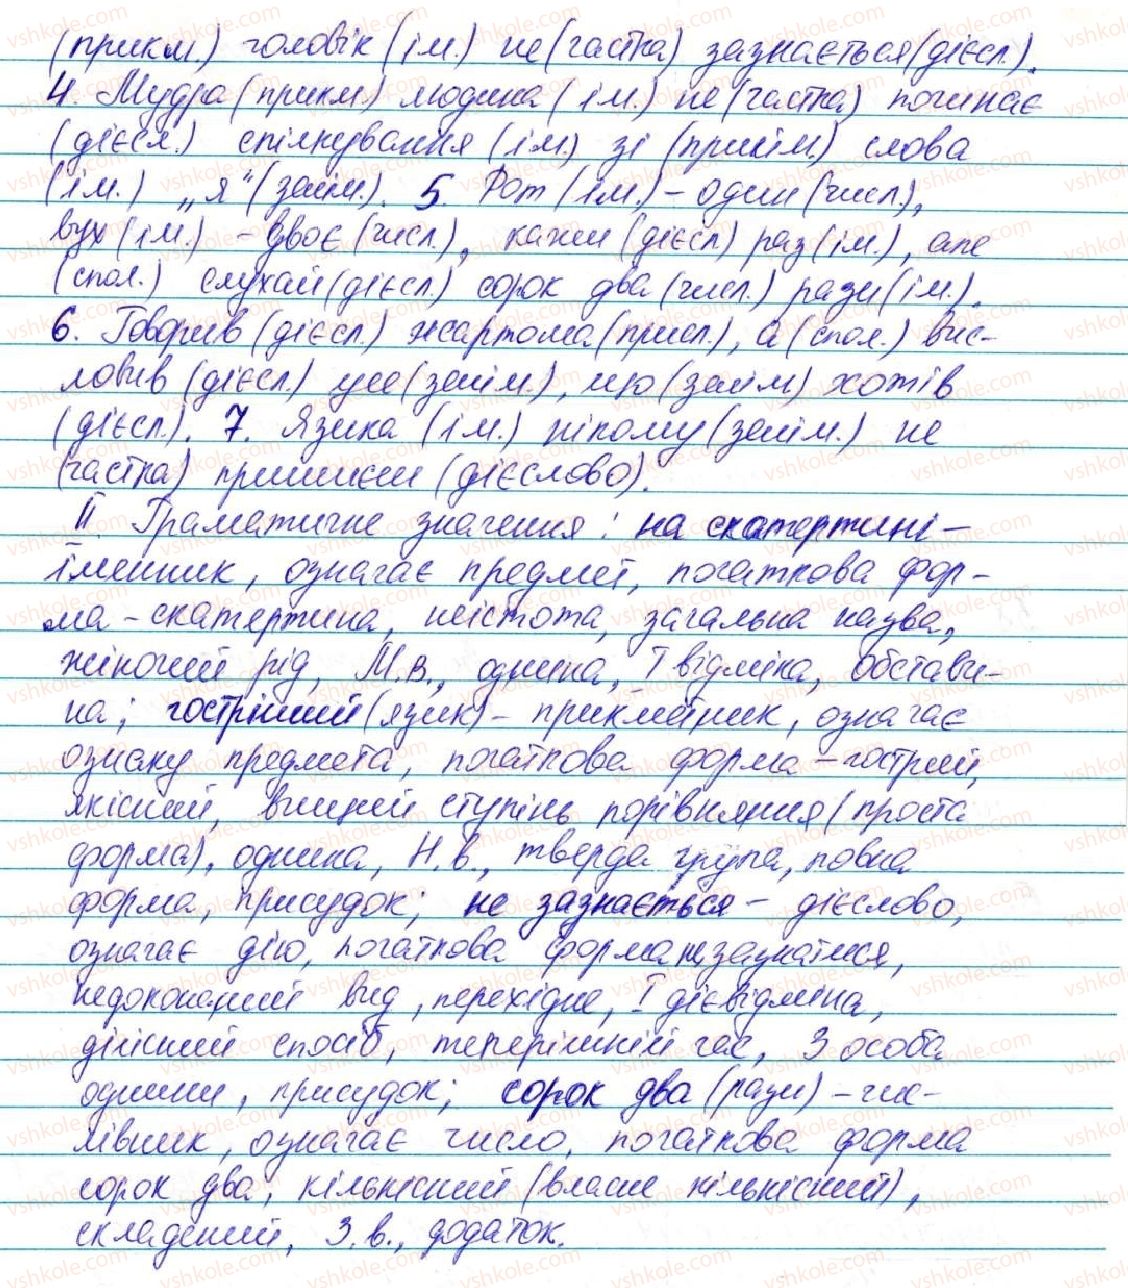 (прикм.) чоловік (ім.) не (частка) зазнається (дієсл.).
4. Мудра (прикм) людина (ім.) не (частка) починає
(дієсл.) спілкування (ім.) зі (прийм.) слова
(ім.) „я“ (займ.). 5. Рот (ім.) – один (числ.),
вух (ім.) – двоє (числ.), кажи (дієсл) раз (ім.), але
(спол.) слухай (дієсл.) сорок два (числ.) рази (ім.).
6. Говорив (дієсл.) жартома (присл.), а (спол.) вис-
ловив (дієсл.) усе (займ.), що (займ) хотів
(дієсл.). 7. Язика (ім.) нікому (займ.) не
(частка) пришиєш (дієслово).
II. Граматичне значення: на скатертині –
іменник, означає предмет, початкова фор-
ма – скатертина, неістота, загальна назва,
жіночий рід, М.в., однина, I відміна, обстави-
на; гостріший (язик) – прикметник, означає
ознаку предмета, початкова форма – гострий,
якісний, вищий ступінь порівняння (проста
форма), однина, Н.в., тверда група, повна
форма, присудок; не зазнається – дієслово,
означає дію, початкова форма не зазнатися,
недоконаний вид, перехідне, I дієвідміна,
дійсний спосіб, теперішній час, 3 особа
однини, присудок; сорок два (рази) – чис-
лівник, означає число, початкова форма
сорок два, кількісний (власне кількісний),
складений, З.в., додаток.